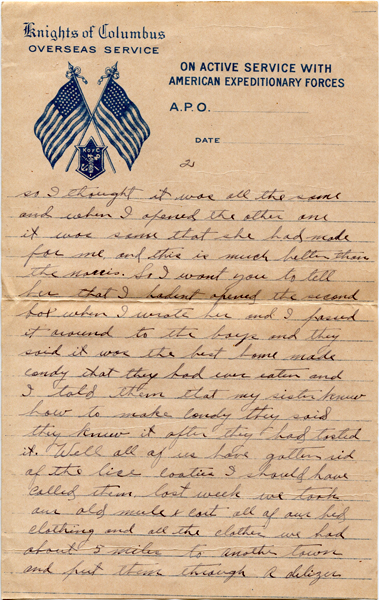 Knights of Columbus
OVERSEAS SERVICE
ON ACTIVE SERVICE WITH
AMERICAN EXPEDITIONARY FORCES
A.P.O.
DATE
K of C
2
so I thought it was all the same
and when I opened the other one
it was some that she had made
for me and this is much better than
the So I want you to tell
her that I hadent opened the second
box when I wrote her and I passed
it around to the boys and they
said it was the best home made
candy that they had ever eaten and
I told them that my sister knew
how to make candy they said
they knew it after they had tasted
it. Well all of us have gotten rid
of the lice cooties I should have
called them last week we took
our old mule & cart all of our bed
clothing and all the clothes we had
about 5 miles to another town
and put them through a